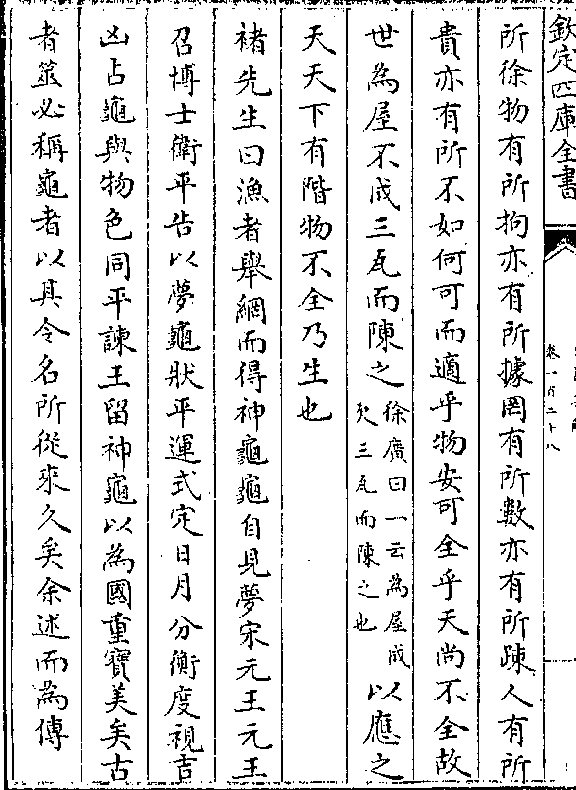 欽定四庫全書
卷一百二十八
所徐物有所拘亦有所據罔有所數亦有所踈人有所
貴亦有所不如何可而適乎物安可全乎天尚不全故
世為屋不成三瓦而陳之徐廣曰一云為屋成欠三瓦而陳之也以應之
天天下有階物不全乃生也
褚先生曰漁者舉網而得神龜龜自見夢宋元王元王
召博士衛平告以夢龜狀平運式定日月分衡度視吉
凶占龜與物色同平諫王留神龜以為國重寶美矣古
者筮必稱龜者以其令名所從來久矣余述而為傳